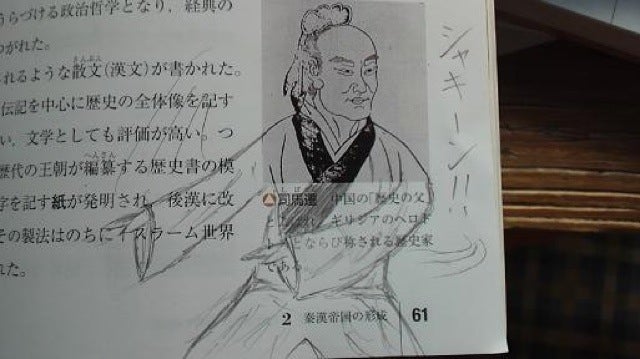 うらづける政治哲学となり，経典の
がれた。
れるような散文(漢文)が書かれた。
伝記を中心に歴史の全体像を記す
い，文学としても評価が高い。つ
歴代の王朝が編纂する歴史書の模
字を記す紙が発明され，後漢に改
その製法はのちにイスラーム世界
れた。
司馬遷 中国の「歴史の父」
ギリシアのヘロド
とならび称される歴史家
である。
シャキーン!!
2 秦漢帝国の形成 61